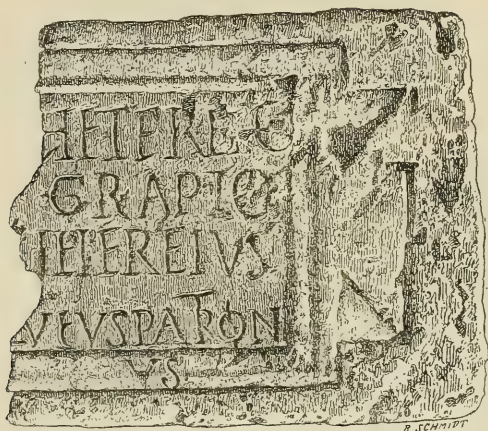 HETERE
GRAPTO
HEREIVS
VSPATRON
VS
R. SCHMIDT